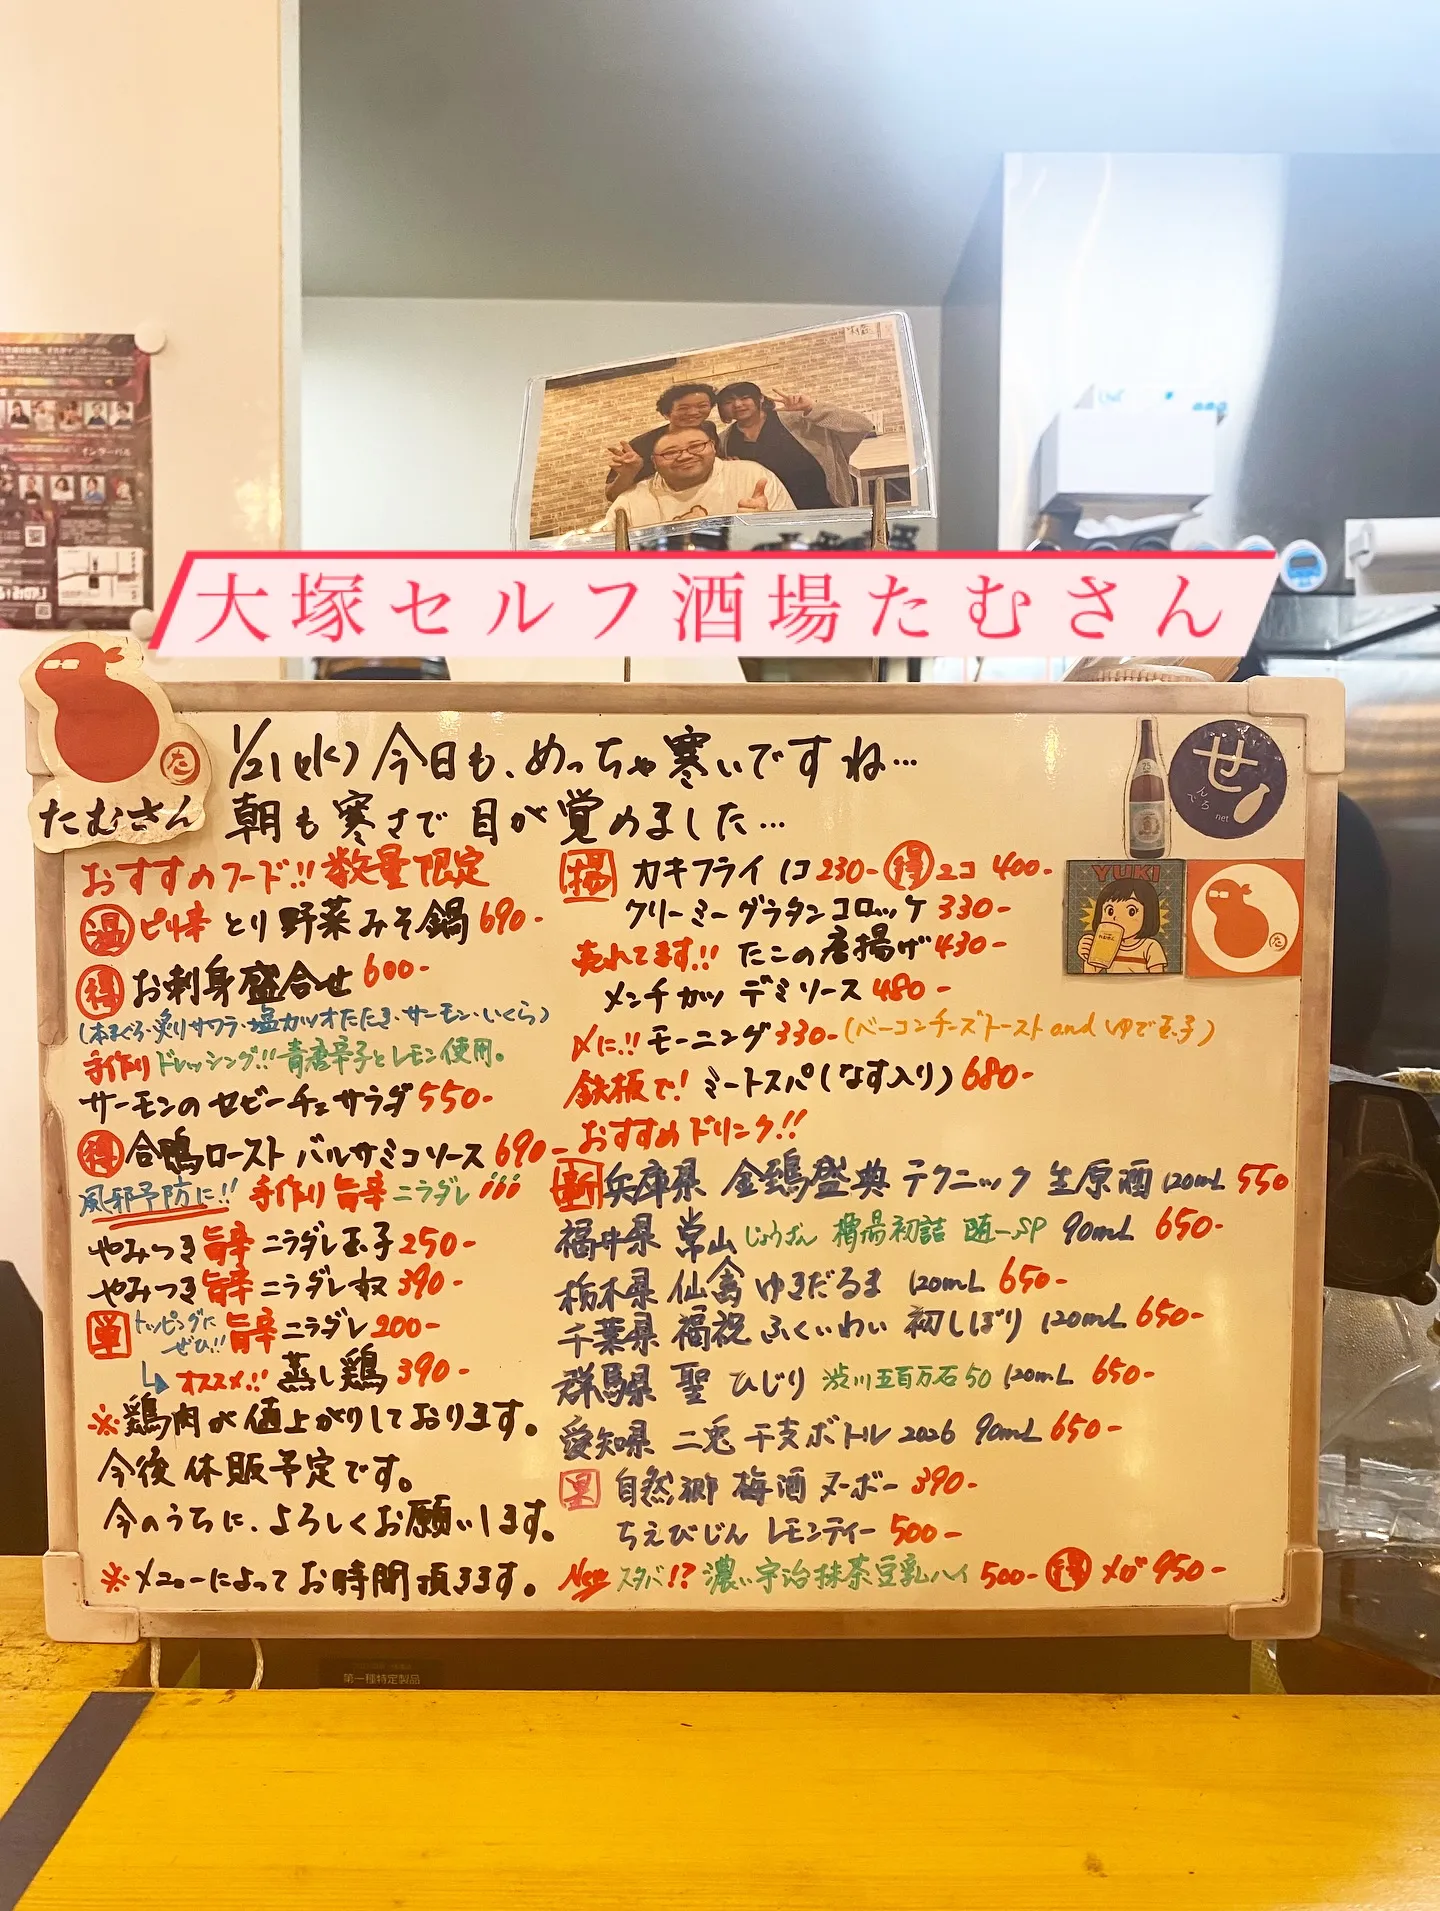 大塚セルフ酒場たむさん
た
たむさん
1/21(水) 今日も、めっちゃ寒いですね…
朝も寒さで目が覚めました…
せ
んべろ
net
YUKI
おすすめフード!! 数量限定
温 ピリ辛 とり野菜みそ鍋 690-
得 お刺身盛合せ 600-
(本まぐろ・炙りサワラ・塩カツオたたき・サーモン・いくら)
手作りドレッシング!! 青唐辛子とレモン使用。
サーモンのセビーチェサラダ 550-
得 合鴨ロースト バルサミコソース 690-
風邪予防に!! 手作り旨辛ニラダレ!!!
やみつき旨辛ニラダレ玉子 250-
やみつき旨辛ニラダレ奴 390-
単 トッピングにぜひ!! 旨辛ニラダレ 200-
オススメ!! 蒸し鶏 390-
※鶏肉が値上がりしております。
今後休販予定です。
今のうちに、よろしくお願いします。
※メニューによってお時間頂きます。
揚 カキフライ 1コ 230- 得 2コ 400-
クリーミーグラタンコロッケ 330-
売れてます!! たこの唐揚げ 430-
メンチカツ デミソース 480-
〆に!! モーニング 330- (ベーコンチーズトースト and ゆで玉子)
鉄板で! ミートスパ(なす入り) 680-
おすすめドリンク!!
新 兵庫県 金鵄盛典 テクニック 生原酒 120mL 550
福井県 常山 じょうざん 槽場初詰 随一SP 90mL 650-
栃木県 仙禽 ゆきだるま 120mL 650-
千葉県 福祝 ふくいわい 初しぼり 120mL 650-
群馬県 聖 ひじり 渋川五百万石50 120mL 650-
愛知県 二兎 干支ボトル 2026 90mL 650-
自然郷 梅酒 ヌーボー 390-
ちえびじん レモンティー 500-
New スタバ!? 濃い宇治抹茶豆乳ハイ 500- 得 メガ 950-
第一種特定製品